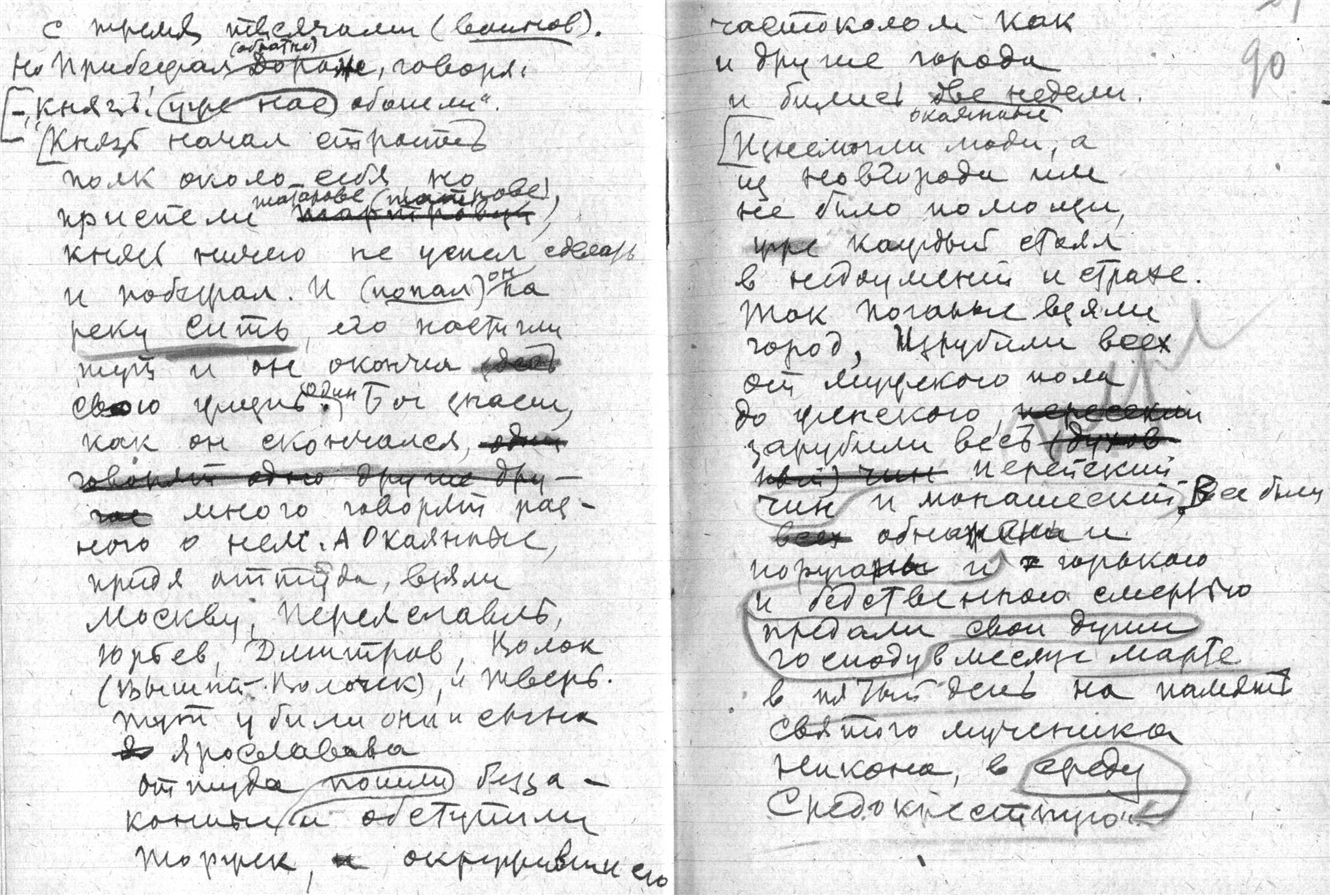 с тремя тысячами (воинов).
(обратно)
Но Прибежал Дорож, говоря:
"князь! уже нас обошли".
Князь начал строить
полк около себя но
татарове (татарове),
приспели
князь ничего не успел сделать
и побежал. И (попал) он на
реку Сить, его настигли
тут и он окончил
свою жизнь. один Бог знает,
как он скончался,
говорят одно другие дру-
гое много говорят раз-
ного о нем. А Окаянные,
придя оттуда, взяли
Москву, Переяславль,
Юрьев, Дмитров, Волок
(Вышний-Волочек), и Тверь.
тут убили они и сына
Ярославова
оттуда пошли безза-
конные и обступили
Торжек, и окружили его
частоколом как
и другие города
и бились две недели.
окаянные
Изнемогли люди, а
из Новгорода им
не было помощи,
уже каждый стоял
в недоумении и страхе.
Так поганые взяли
город, Изрубили всех
от мужского пола
до женского,
зарубили весь (духов
ный) чин иерейский
чин и монашеский. Все были
всех обнажены и
поруганы и горькою
и бедственною смертью
предали свои души
господу в месяце марте
в пятый день на память
святого мученика
Никона, в среду
Средокрестную".
90